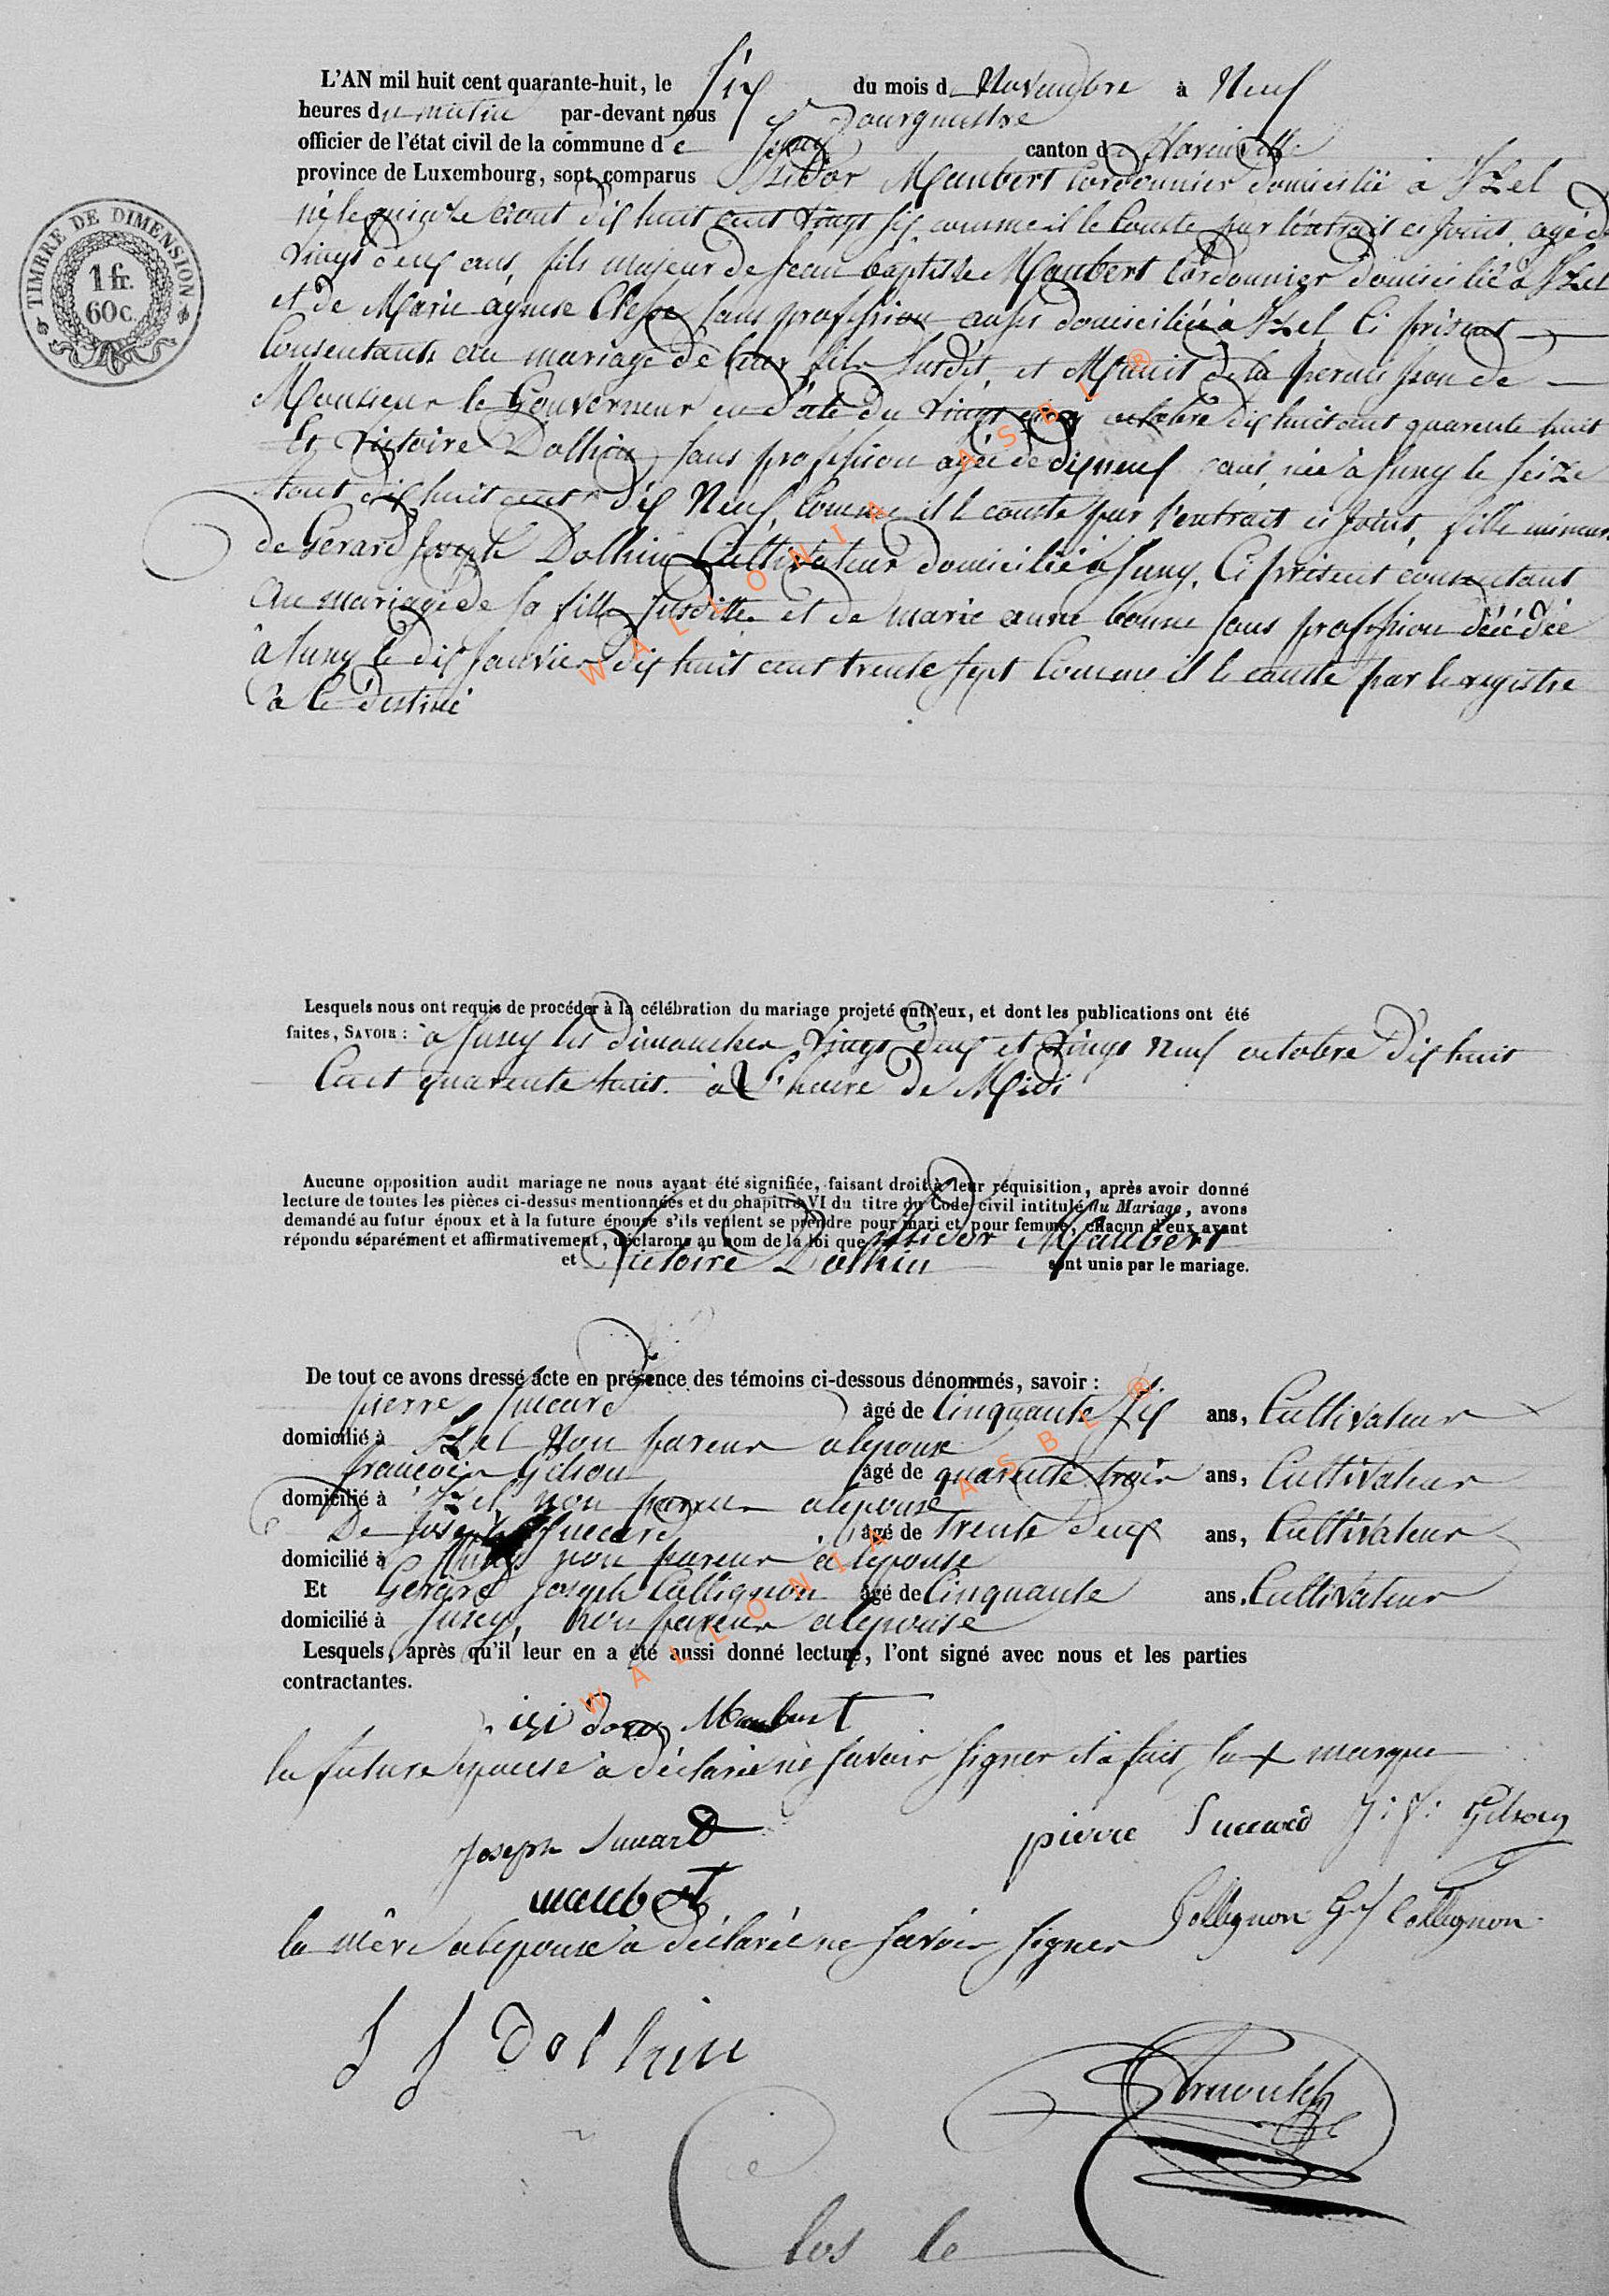 TIMBRE DE DIMENSION
1 fr.
60 c.
L'AN mil huit cent quarante-huit, le six du mois de Novembre à Neuf
heures du matin par-devant nous Bourgmestre
officier de l'état civil de la commune de canton de
province de Luxembourg, sont comparus Isidor Maubert Cordonnier domicilié à Izel
né le quinze aout dix huit cent vingt six comme il le Conste par l'extrait ci joint, agé de
vingt deux ans, fils majeur de Jean baptiste Maubert Cordonnier domicilié à Izel
et de Marie agnese sans profession aussi domiciliée à Izel Ci présent
Consentants au mariage de leur fils susdit, et Munit de la permission de
Monsieur le Gouverneur en date du vingt octobre dix huit cent quarente huit
Et Victoire Dolhin sans profession agée de dix neuf ans, née à Suxy le seize
dix huit cent Neuf, Comme il le conste par l'extrait ci joint, fille mineur
de Gerard Joseph Dolhin Cultivateur domicilié à Suxy, Ci présent consentant
au mariage de sa fille susditte et de marie anne bonne sans profession décédée
à Suxy le dix Janvier dix huit cent trente sept Comme il le conste par le registre
à ce destiné
Lesquels nous ont requis de procéder à la célébration du mariage projeté entr'eux, et dont les publications ont été
faites, SAVOIR : à Suxy les dimanches vingt deux et vingt Neuf octobre dix huit
Cent quarente huit à L'heure de Midi
Aucune opposition audit mariage ne nous ayant été signifiée, faisant droit à leur réquisition, après avoir donné
lecture de toutes les pièces ci-dessus mentionnées et du chapitre VI du titre du Code civil intitulé du Mariage, avons
demandé au futur époux et à la future épouse s'ils veulent se prendre pour mari et pour femme, chacun d'eux ayant
répondu séparément et affirmativement, déclarons au nom de la loi que Isidor Maubert
et Victoire Dolhin sont unis par le mariage.
De tout ce avons dressé acte en présence des témoins ci-dessous dénommés, savoir :
pierre Sucard âgé de Cinquante six ans, Cultivateur
domicilié à Izel Non pareur alepouse
francois Gilson âgé de quarente trois ans, Cultivateur
domicilié à Izel, non pareur alepouse
De Joseph Succard âgé de trente deux ans, Cultivateur
domicilié à Suxy non pareur à lepouse
Et Gerard Joseph Collignon âgé de Cinquante ans, Cultivateur
domicilié à Suxy, non pareur alepouse
Lesquels, après qu'il leur en a été aussi donné lecture, l'ont signé avec nous et les parties
contractantes.
isi dore Maubert
la future epouse à déclarée ne savoir signer et à fait sa + marque
Joseph Succard pierre Succard J: f: Gilson
maubert
Collignon G J Collignon
la mère alepoux à déclarée ne savoir signer
J J Dolhin
Arnould
Clos le
WALLONIA ASBL ®
WALLONIA ASBL ®